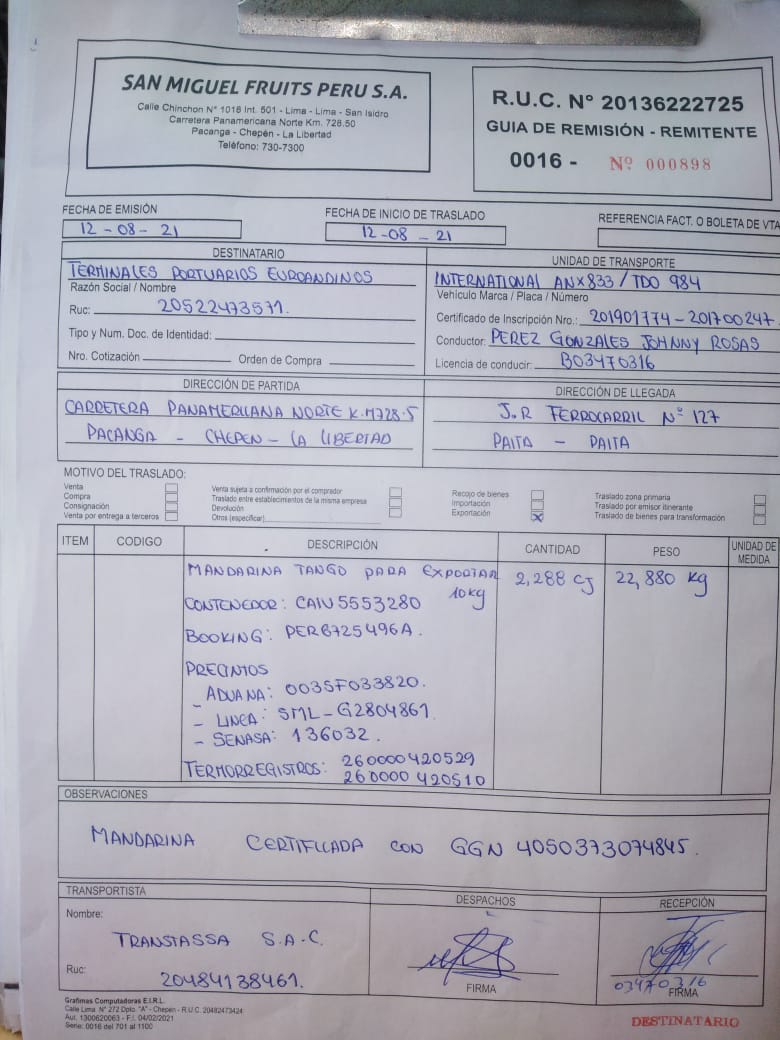 SAN MIGUEL FRUITS PERU S.A.
Calle Chinchon N° 1018 Int. 501 - Lima - Lima - San Isidro
Carretera Panamericana Norte Km. 728.50
Pacanga - Chepén - La Libertad
Teléfono: 730-7300
R.U.C. N° 20136222725
GUIA DE REMISIÓN - REMITENTE
0016 - Nº 000898
FECHA DE EMISIÓN
12-08-21
FECHA DE INICIO DE TRASLADO
12-08-21
REFERENCIA FACT. O BOLETA DE VTA
DESTINATARIO
TERMINALES PORTUARIOS EUROANDINOS
Razón Social / Nombre
Ruc: 20522473571.
Tipo y Num. Doc. de Identidad:
Nro. Cotización Orden de Compra
UNIDAD DE TRANSPORTE
INTERNATIONAL ANX833 / TDO 984
Vehículo Marca / Placa / Número
Certificado de Inscripción Nro.: 201901774-201700247
Conductor: PEREZ GONZALES JOHNNY ROSAS
Licencia de conducir: B03470316
DIRECCIÓN DE PARTIDA
CARRETERA PANAMERICANA NORTE K.M728.5
PACANGA - CHEPEN - LA LIBERTAD
DIRECCIÓN DE LLEGADA
J.R FERROCARRIL Nº 127
PAITA - PAITA
MOTIVO DEL TRASLADO:
Venta
Compra
Consignación
Venta por entrega a terceros
Venta sujeta a confirmación por el comprador
Traslado entre establecimientos de la misma empresa
Devolución
Otros (especificar)
Recojo de bienes
Importación
Exportación X
Traslado zona primaria
Traslado por emisor itinerante
Traslado de bienes para transformación
ITEM CODIGO DESCRIPCIÓN CANTIDAD PESO UNIDAD DE MEDIDA
MANDARINA TANGO PARA EXPORTAR 2,288 CJ 22,880 Kg
10kg
CONTENEDOR: CAIU5553280
BOOKING: PER8725496A.
PRECINTOS
- ADUANA: 0035F033820.
- LINEA: SML-G2804861.
- SENASA: 136032.
TERMORREGISTROS: 260000420529
260000420510
OBSERVACIONES
MANDARINA CERTIFICADA CON GGN 4050373074845.
TRANSPORTISTA
Nombre:
TRANSTASSA S.A.C.
Ruc: 20484138461.
DESPACHOS
FIRMA
RECEPCIÓN
03470316
FIRMA
Grafimas Computadoras E.I.R.L.
Calle Lima N° 272 Dpto. "A" - Chepén - R.U.C. 20482473424
Aut. 1300620063 - F.I. 04/02/2021
Serie: 0016 del 701 al 1100
DESTINATARIO